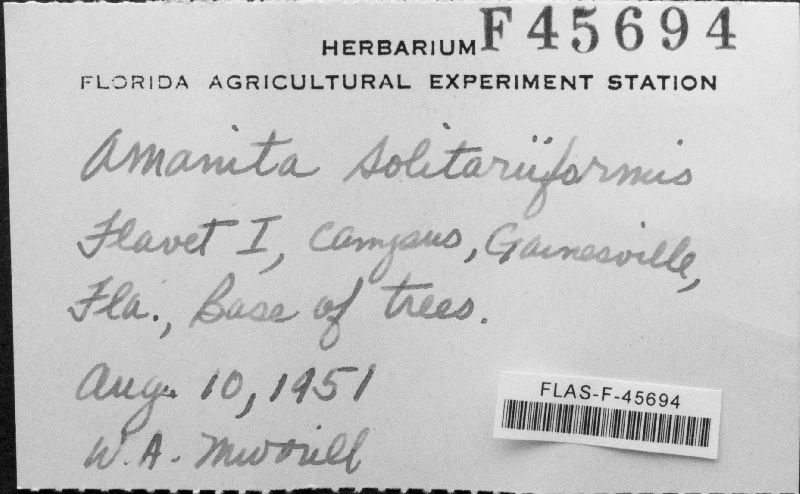 HERBARIUM F45694
FLORIDA AGRICULTURAL EXPERIMENT STATION
Amanita solitariiformis
Flavet I, campus, Gainesville,
Fla., Base of trees.
Aug. 10, 1951
W. A. Murrill
FLAS-F-45694